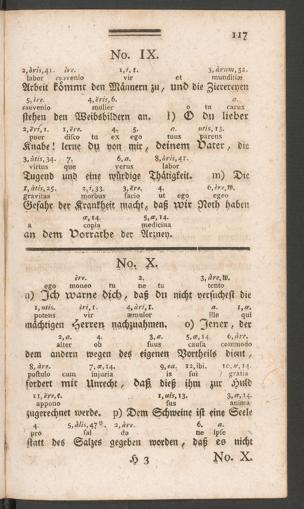 117
No. IX.
2, óris, 41. ire. 1, i, 1. 3, árum, 52.
labor convenio vir et munditiæ
Arbeit kömmt den Männern zu, und die Zierereyen
5, ire. 4, ëris, 6. a.
convenio mulier o tu carus
stehen den Weibsbildern an. l) O du lieber
2, ëri, 1. 1, ëre. 4. 5. a. utis, 13.
puer disco tu ex ego tuus parens
Knabe! lerne du von mir, deinem Vater, die
3, útis, 34. 7. 6, a. 8, óris, 41.
virtus que verus labor
Tugend und eine würdige Thätigkeit. m) Die
1, átis, 25. 2, i, 33. 3, ëre. 4. 6, ëre, w.
gravitas morbus facio ut ego egeo
Gefahr der Krankheit macht, daß wir Noth haben
4, æ, 14. 5, æ, 14.
a copia medicina
an dem Vorrathe der Arzney.
No. X.
ëre. 2. 3, áre, w.
ego moneo tu ne tu tento
n) Ich warne dich, daß du nicht versuchest die
1, utis. iri, 1. 4, ári, t. a. 1, a.
potens vir æmulor o ille qui
mächtigen Herren nachzuahmen. o) Jener, der
2, a. 4. 3, a. 5, æ, 14. 6, áre.
alter ob suus causa commodo
dem andern wegen des eigenen Vortheils dient,
8, áre. 7, æ, 14. 9, ea. 12, ibi. 10, æ, 14.
postulo cum injuria is sui gratia
fordert mit Unrecht, daß dieß ihm zur Huld
11, ëre, t. 1, uis, 13. 3, æ, 14.
appono sus anima
zugerechnet werde. p) Dem Schweine ist eine Seele
4. 5, ális, 47. 2, áre. 6. a.
pro sal do ne ipse
statt des Salzes gegeben worden, daß es nicht
H 3 No. X.